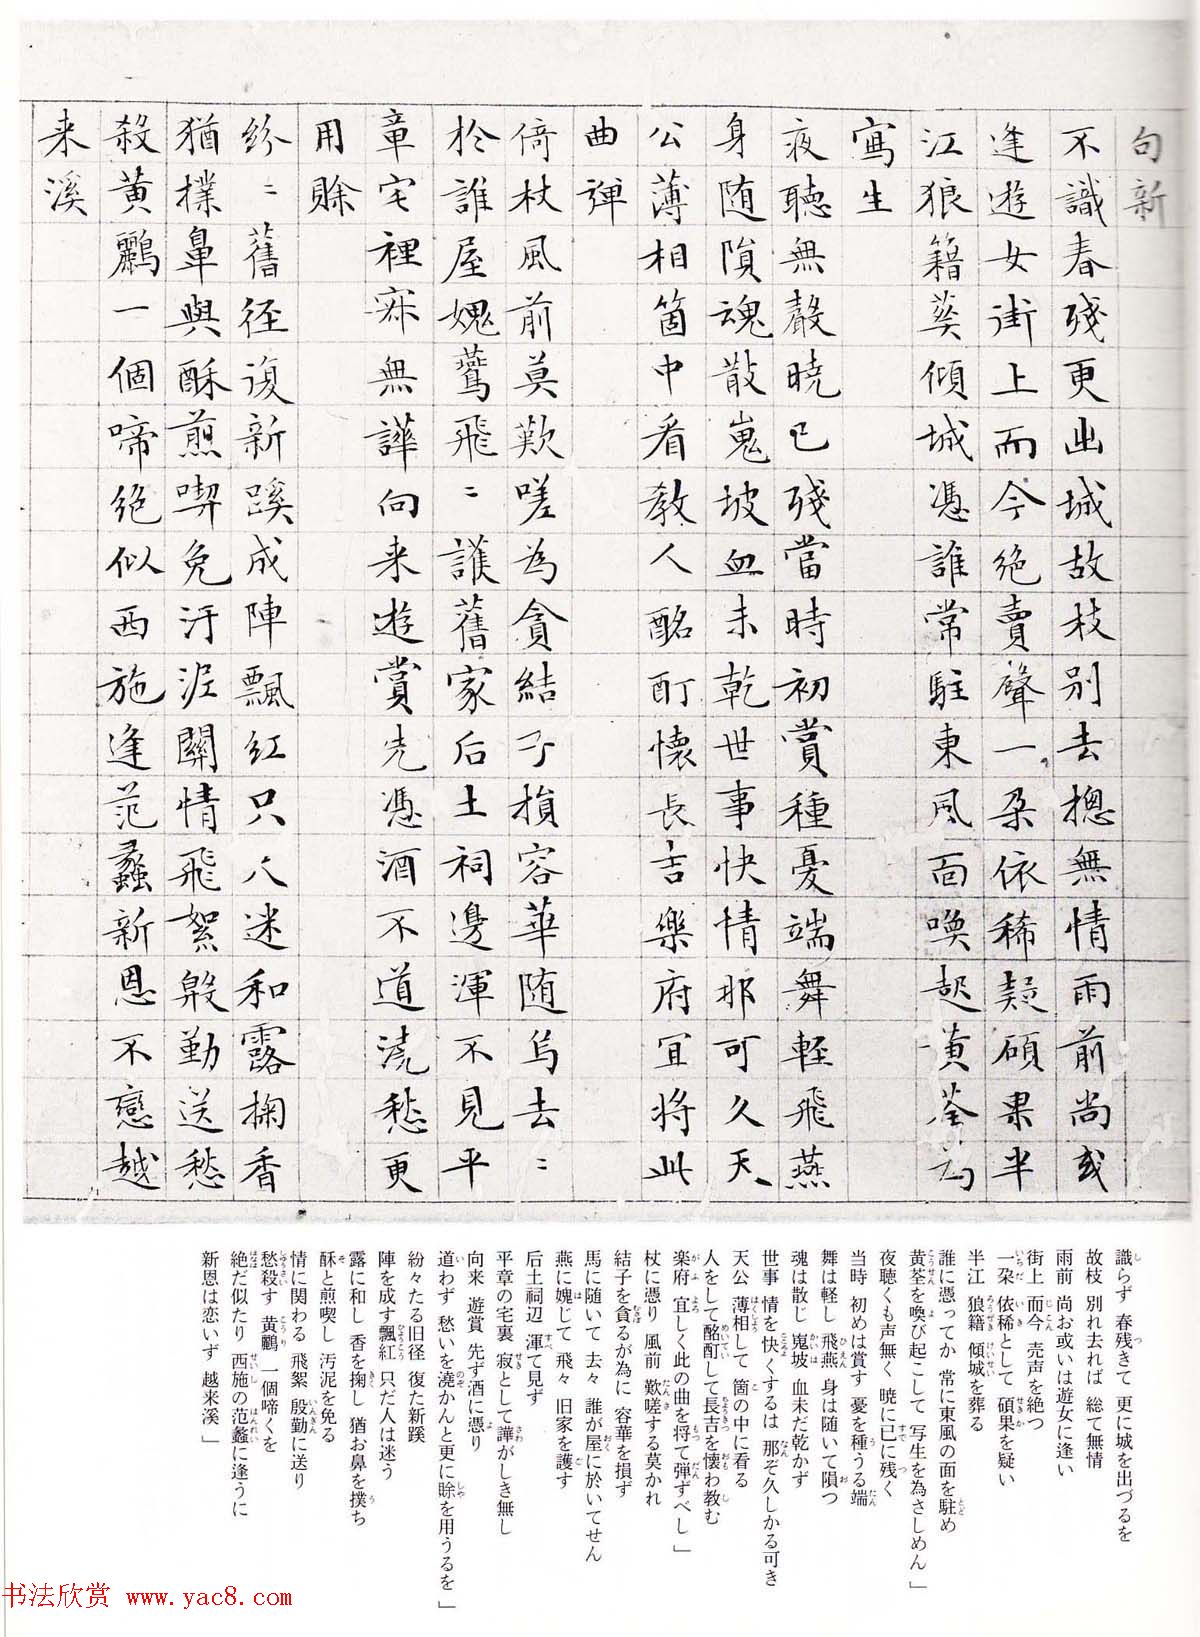 句新
不識春殘更出城故枝別去摠無情雨前尚或
逢遊女街上而今絶賣聲一朶依稀疑碩果半
江狼籍葬傾城憑誰常駐東風面喚起黄荃為
寫生
夜聽無聲曉已殘當時初賞種憂端舞輕飛燕
身随隕魂散嵬坡血未乾世事快情那可久天
公薄相箇中看教人酩酊懷長吉樂府宜將此
曲彈
倚杖風前莫歎嗟為貪結子損容華随馬去〻
於誰屋媿鷰飛〻護舊家后土祠邊渾不見平
章宅裡寂無譁向来遊賞先憑酒不道澆愁更
用賖
紛〻舊径復新蹊成陣飄紅只人迷和露掬香
猶撲鼻與酥煎喫免汙泥關情飛絮殷勤送愁
殺黄鸝一個啼絶似西施逢范蠡新恩不戀越
来溪
識らず 春残きて 更に城を出づるを
故枝 別れ去れば 総て無情
雨前 尚お或いは遊女に逢い
街上 而今 売声を絶つ
一朶 依稀として 碩果を疑い
半江 狼籍 傾城を葬る
誰に憑ってか 常に東風の面を駐め
黄荃を喚び起こして 写生を為さしめん」
夜聴くも声無く 暁に已に残く
当時 初めは賞す 憂を種うる端
舞は軽し 飛燕 身は随いて隕つ
魂は散じ 嵬坡 血未だ乾かず
世事 情を快くするは 那ぞ久しかる可き
天公 薄相して 箇の中に看る
人をして酩酊して長吉を懐わ教む
楽府 宜しく此の曲を将て弾ずべし」
杖に憑り 風前 歎嗟する莫かれ
結子を貪るが為に 容華を損ず
馬に随いて 去々 誰が屋に於いてせん
燕に媿じて 飛々 旧家を護す
后土祠辺 渾て見ず
平章の宅裏 寂として譁がしき無し
向来 遊賞 先ず酒に憑り
道わず 愁いを澆かんと更に賖を用うるを」
紛々たる旧径 復た新蹊
陣を成す飄紅 只だ人は迷う
露に和し 香を掬し 猶お鼻を撲ち
酥と煎喫し 汚泥を免る
情に関わる 飛絮 殷勤に送り
愁殺す 黄鸝 一個啼くを
絶だ似たり 西施の范蠡に逢うに
新恩は恋いず 越来溪」
书法欣赏 www.yac8.com